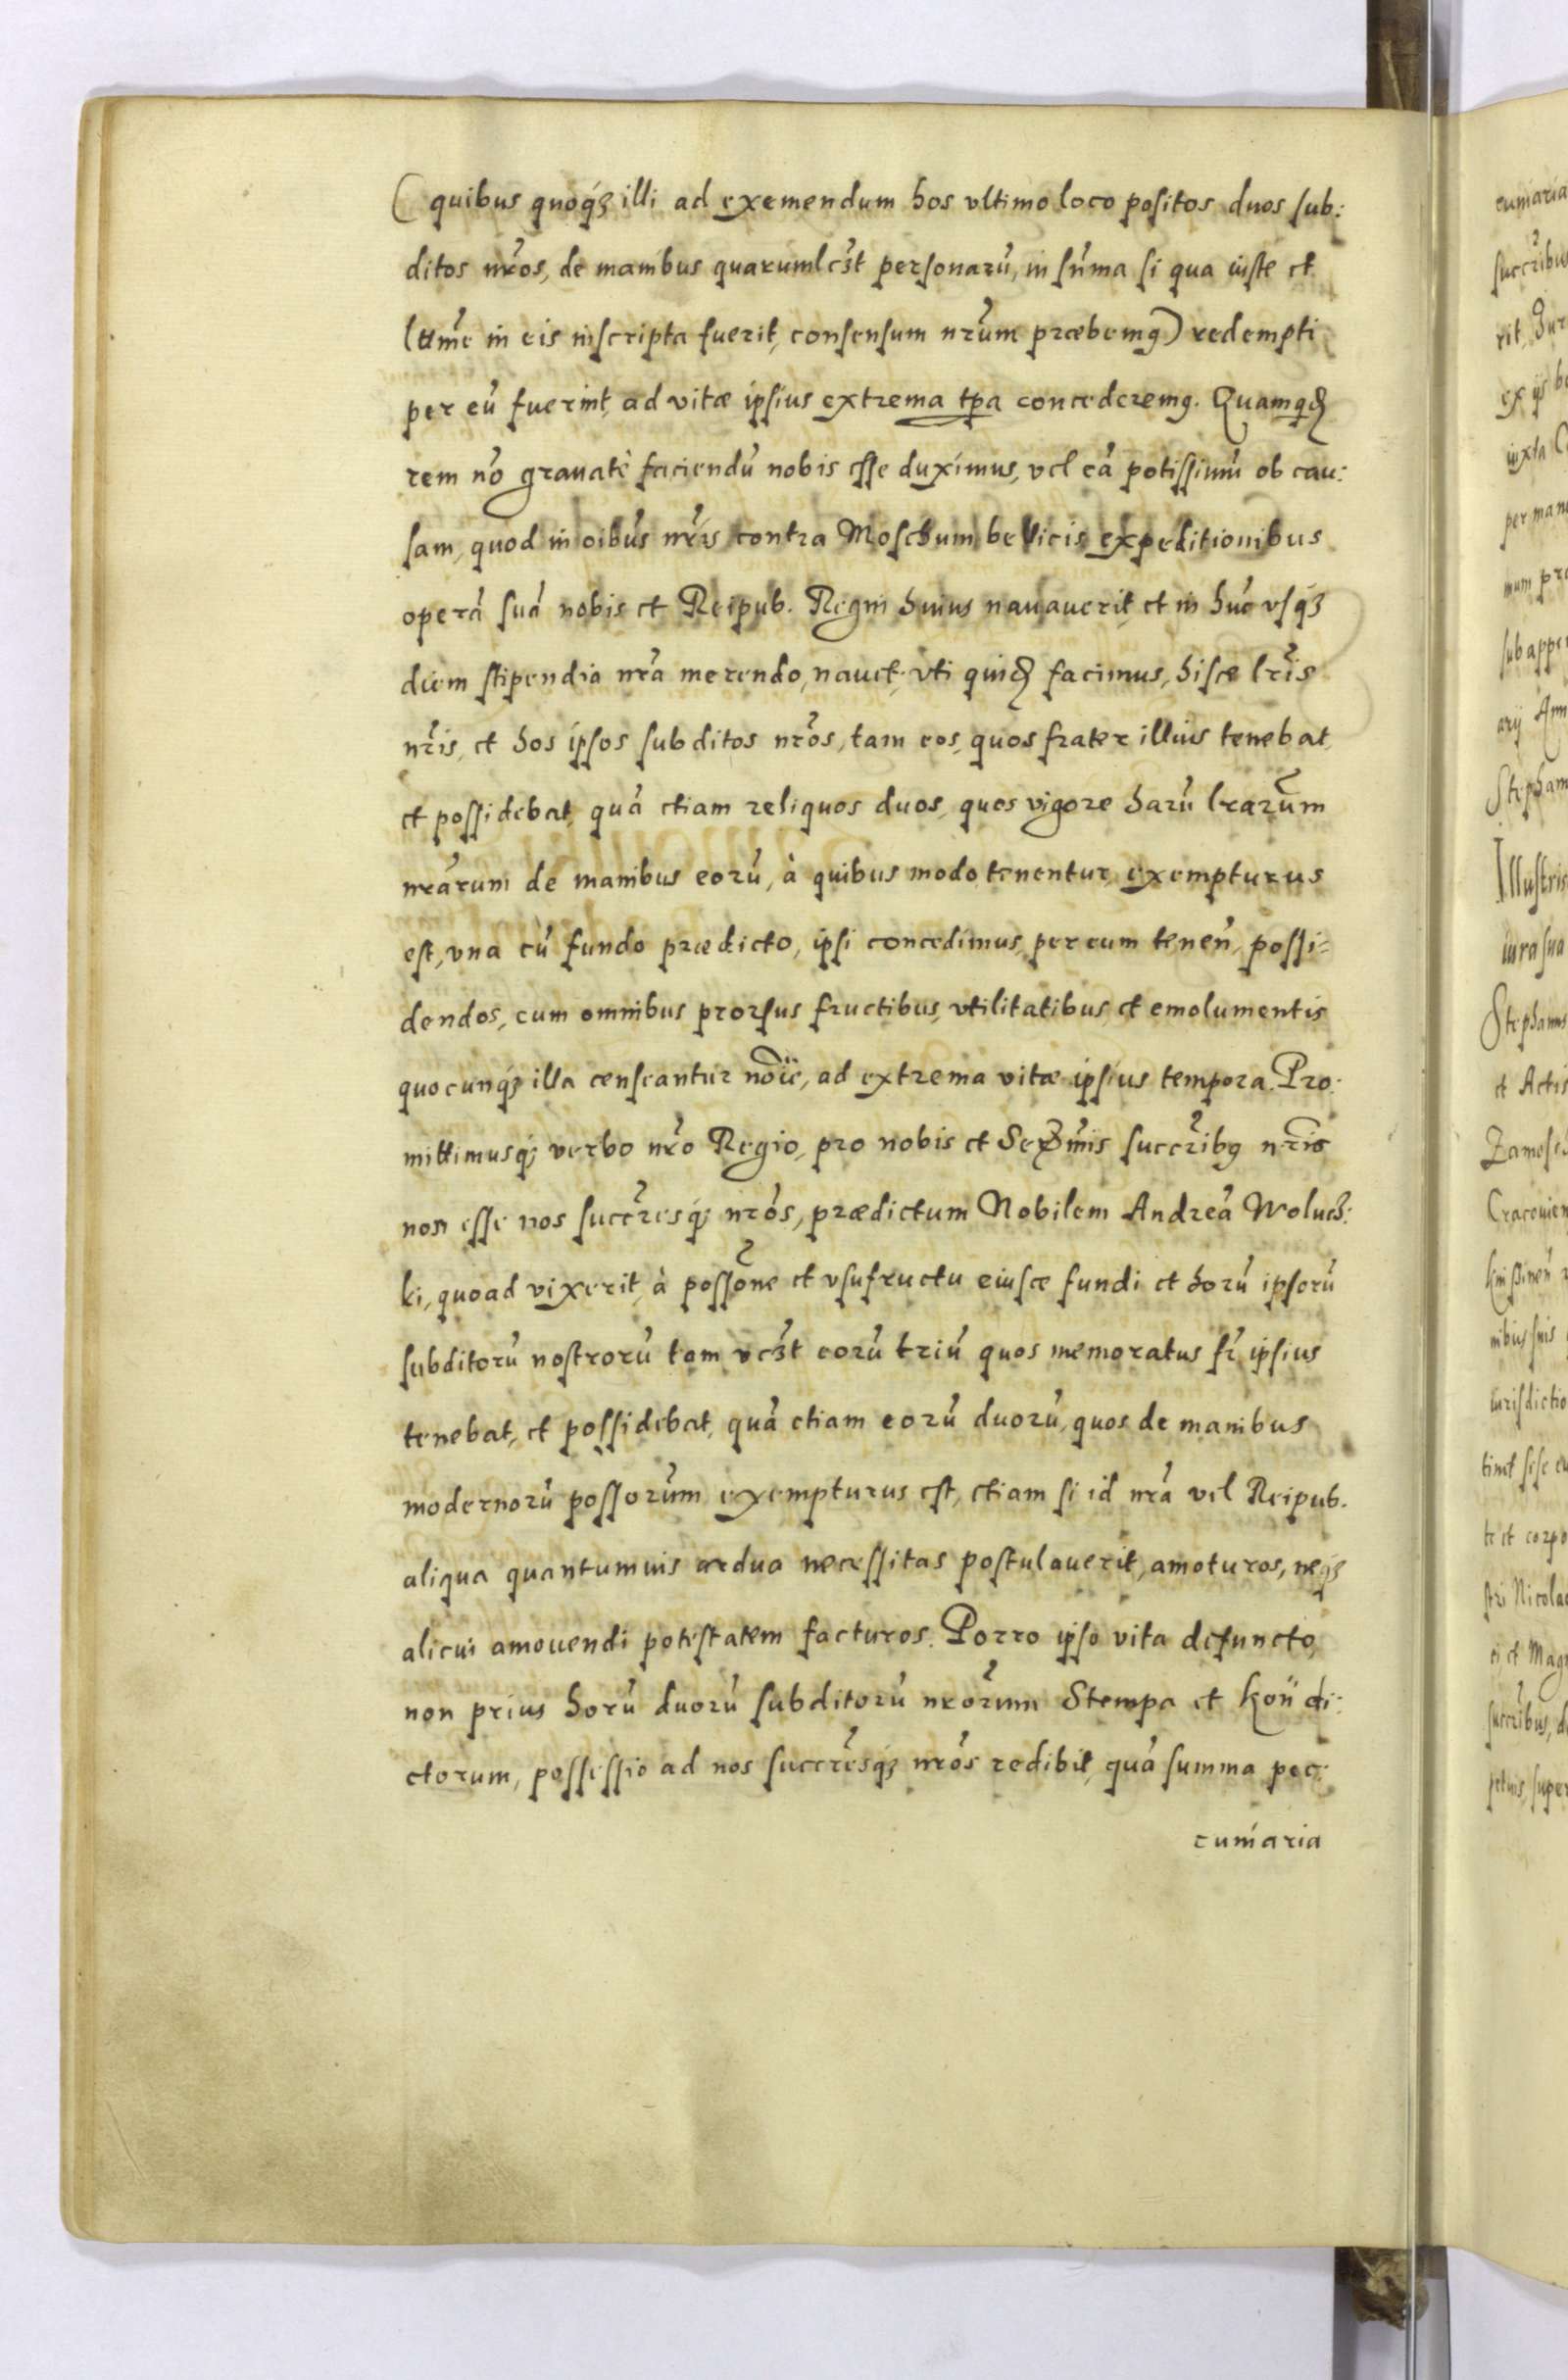 ( quibus quoq́ꝫ illi ad exemendum hos vltimo loco positos duos sub:
ditos nr̃os, de manibus quarumlꝫt personarũ, in sũma si qua iuste et
lttme in eis inscripta fuerit, consensum nr̃um præbemꝯ) redempti
per eũ fuerint, ad vitæ ipsius extrema tp̃a concederemꝯ. Quamqdꝫ
rem nõ grauatè faciendũ nobis esse duximus, vel eã potissimũ ob cau:
sam, quod in oĩbus nr̃is contra Moschum bellicis expeditionibus
operã suã nobis et Reipub. Regni huius nauauerit, et in hũc vsq́ꝫ
diem stipendia nr̃a merendo, nauet, vti quidꝫ facimus, hisce lr̃is
nr̃is, et hos ipsos subditos nr̃os, tam eos, quos frater illius tenebat,
et possidebat, quã etiam reliquos duos, quos vigore harũ lrar̃um
nr̃arum de manibus eorũ, à quibus modo tenentur, exempturus
est, vna cũ fundo prædicto, ipsi concedimus, per eum tenen̄, possi=
dendos, cum omnibus prorsus fructibus, vtilitatibus, et emolumentis
quocunq́ꝫ illa censeantur nõie, ad extrema vitæ ipsius tempora. Pro:
mittimusq́ꝫ verbo nr̃o Regio, pro nobis et Serm̃is succr̃ibꝯ nr̃is
non esse nos succr̃esq́ꝫ nr̃os, prædictum Nobilem Andreã Woluch:
ki, quoad vixerit, à possõne et vsufructu eiusce fundi et horũ ipsorũ
subditorũ nostrorũ tam vcꝫt eorũ triũ quos memoratus fr̃ ipsius
tenebat, et possidebat, quã etiam eorũ duorũ, quos de manibus
modernorũ possor̃um exempturus est, etiam si id nr̃a vel Reipub.
aliqua quantumuis ardua necessitas postulauerit, amoturos, neqꝫ
alicui amouendi potestatem facturos. Porro ipso vita defuncto,
non prius horũ duorũ subditorũ nror̃um Stempa et Koũ di:
ctorum, possessio ad nos succr̃esq́ꝫ nr̃os redibit, quã summa pec:
cuniaria